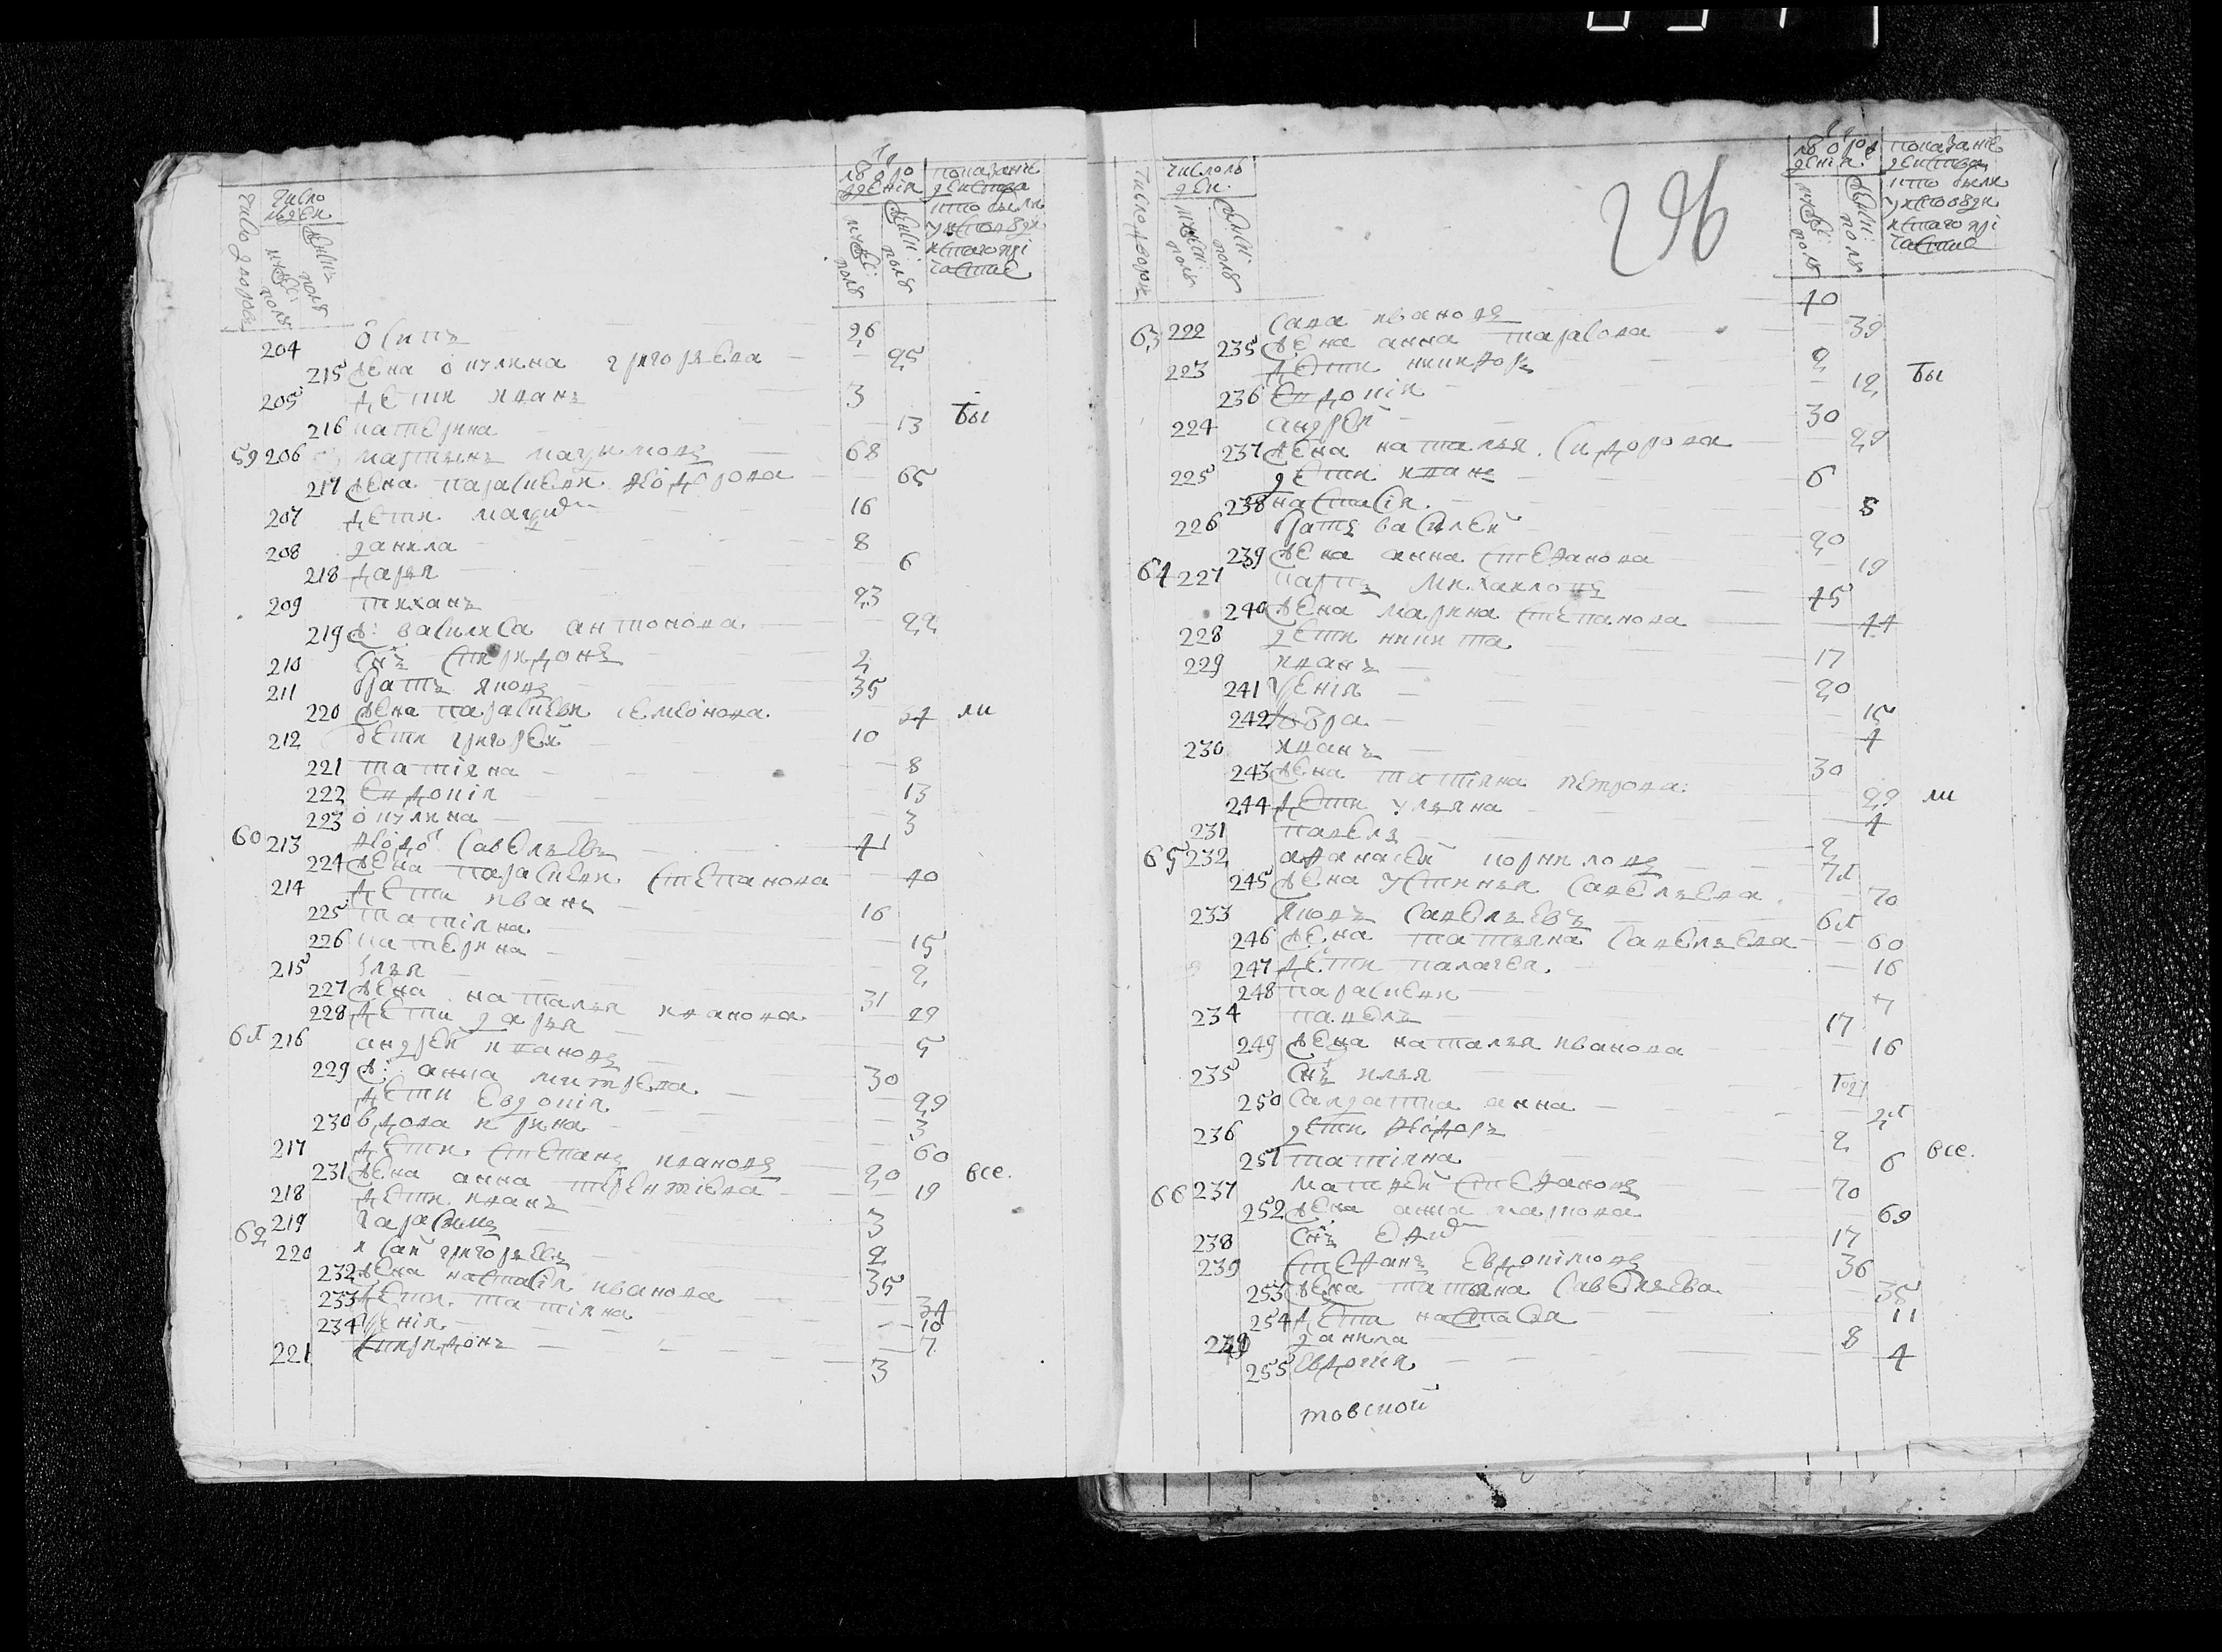 число дворовъ
число
людеи
мужескъ полъ
женскъ полъ
лѣ
рожденія
мужес: полъ
женс: полъ
показаніе
деиства
кто были
у исповеди
204 Осипъ 26
215 жена Окулина Григорьева 25
205 дети Иванъ 3
216 Катерина 13 бы
59 206 Мартынъ 68
217 жена Параскеви Ѳіодорова 65
207 дети 16
208 Данила 8
218 Дарья 6
209 Тиханъ 23
219 ж: Василиса Антонова 22
210 снъ Спиридонъ 2
211 братъ Яковъ 35
220 жена Параскеви Семіонова 34 ли
212 дети Григорей 10
221 Татіяна 8
222 Евдокія 13
223 Окулина 3
60 213 Ѳіодо Савельевъ 41
224 жена Параскеви Степанова 40
214 дети Иванъ 16
225 Татіяна 15
226 Катерина 2
215 Ілья 31
227 жена Наталья Иванова 29
228 дети Дарья 5
61 216 Андрей Ивановъ 30
229 ж: Анна Митрева 29
дети Евдокія 3
230 вдова Ирина 60
217 дети Степанъ Ивановъ 20 все.
231 жена Анна Терентіева 19
218 дети Иванъ 3
219 Гарасимъ 2
62 220 Исаи Григорьевъ 35
232 жена Настасія Иванова 34
233 дети Татіяна 10
234 Ксенія 7
221 Спиридонъ 3
296
число дворовъ
число лю
деи
мужескі полъ
женскі полъ
лѣ
рождения
мужес: полъ
женскі: поля
показаніе
деиства
кто были
у исповеди
63 222 Сава Ивановъ 40
235 жена Анна Тарасова 39
223 дети Никифоръ 2
236 Евдокія 12 бы
224 Андрей 30
237 жена Наталья Сидорова 29
225 дети Иванъ 6
238 Настасія 8
226 братъ Василей 20
239 жена Анна Стефанова 19
64 227 Карпъ Михаиловъ 45
240 жена Марина Степанова 44
228 дети Никита 17
229 Иванъ 20
241 Ксенія 15
242 4
230 Иванъ 30
243 жена Татіяна Петрова 29 ли
244 дети Ульяна 4
231 Павелъ 2
65 232 Афанасей Корниловъ 71
245 жена Устинья Савельева 70
233 Яковъ Савельевъ 61
246 жена Татьяна Савельева 60
247 дети Палагея 16
248 Параскеви 7
234 Павелъ 17
249 жена Наталья Иванова 16
235 снъ Илья год
250 салдатка Анна 21
236 дети Ѳіодоръ 2
251 Татіяна 6 все.
66 237 Матвей Стефановъ 70
252 жена Анна 69
238 снъ 17
239 Стефанъ Евдокімовъ 36
253 жена Татьяна Савельева 35
254 дети Настасья 11
240 Данила 8
255 Евдокія 4
товской